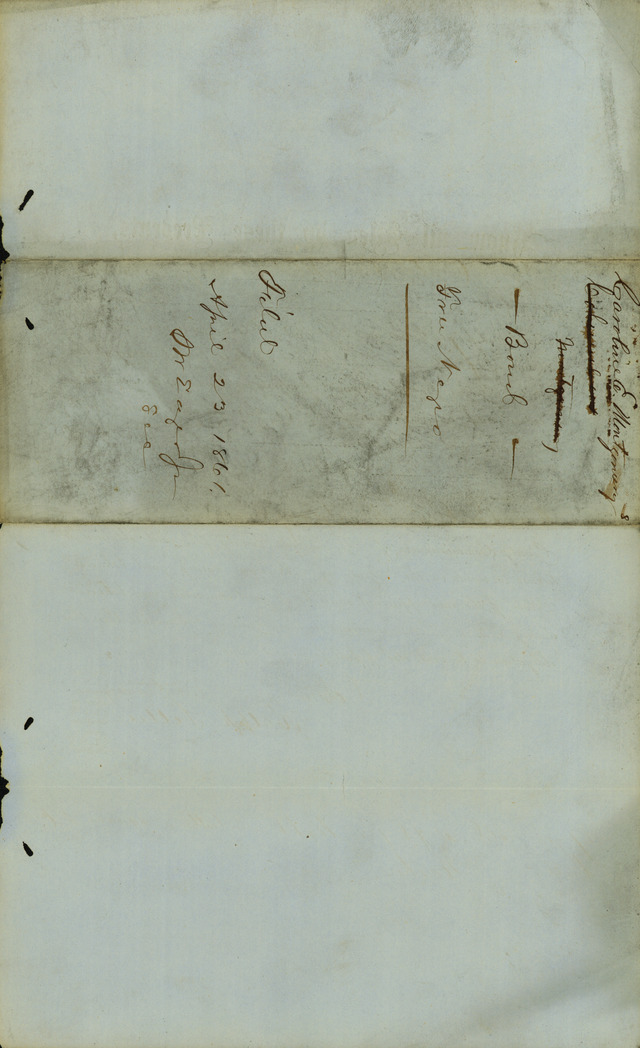 Caroline E Montgomery's
— Bond —
Free Negro
Filed
April 23 1861.